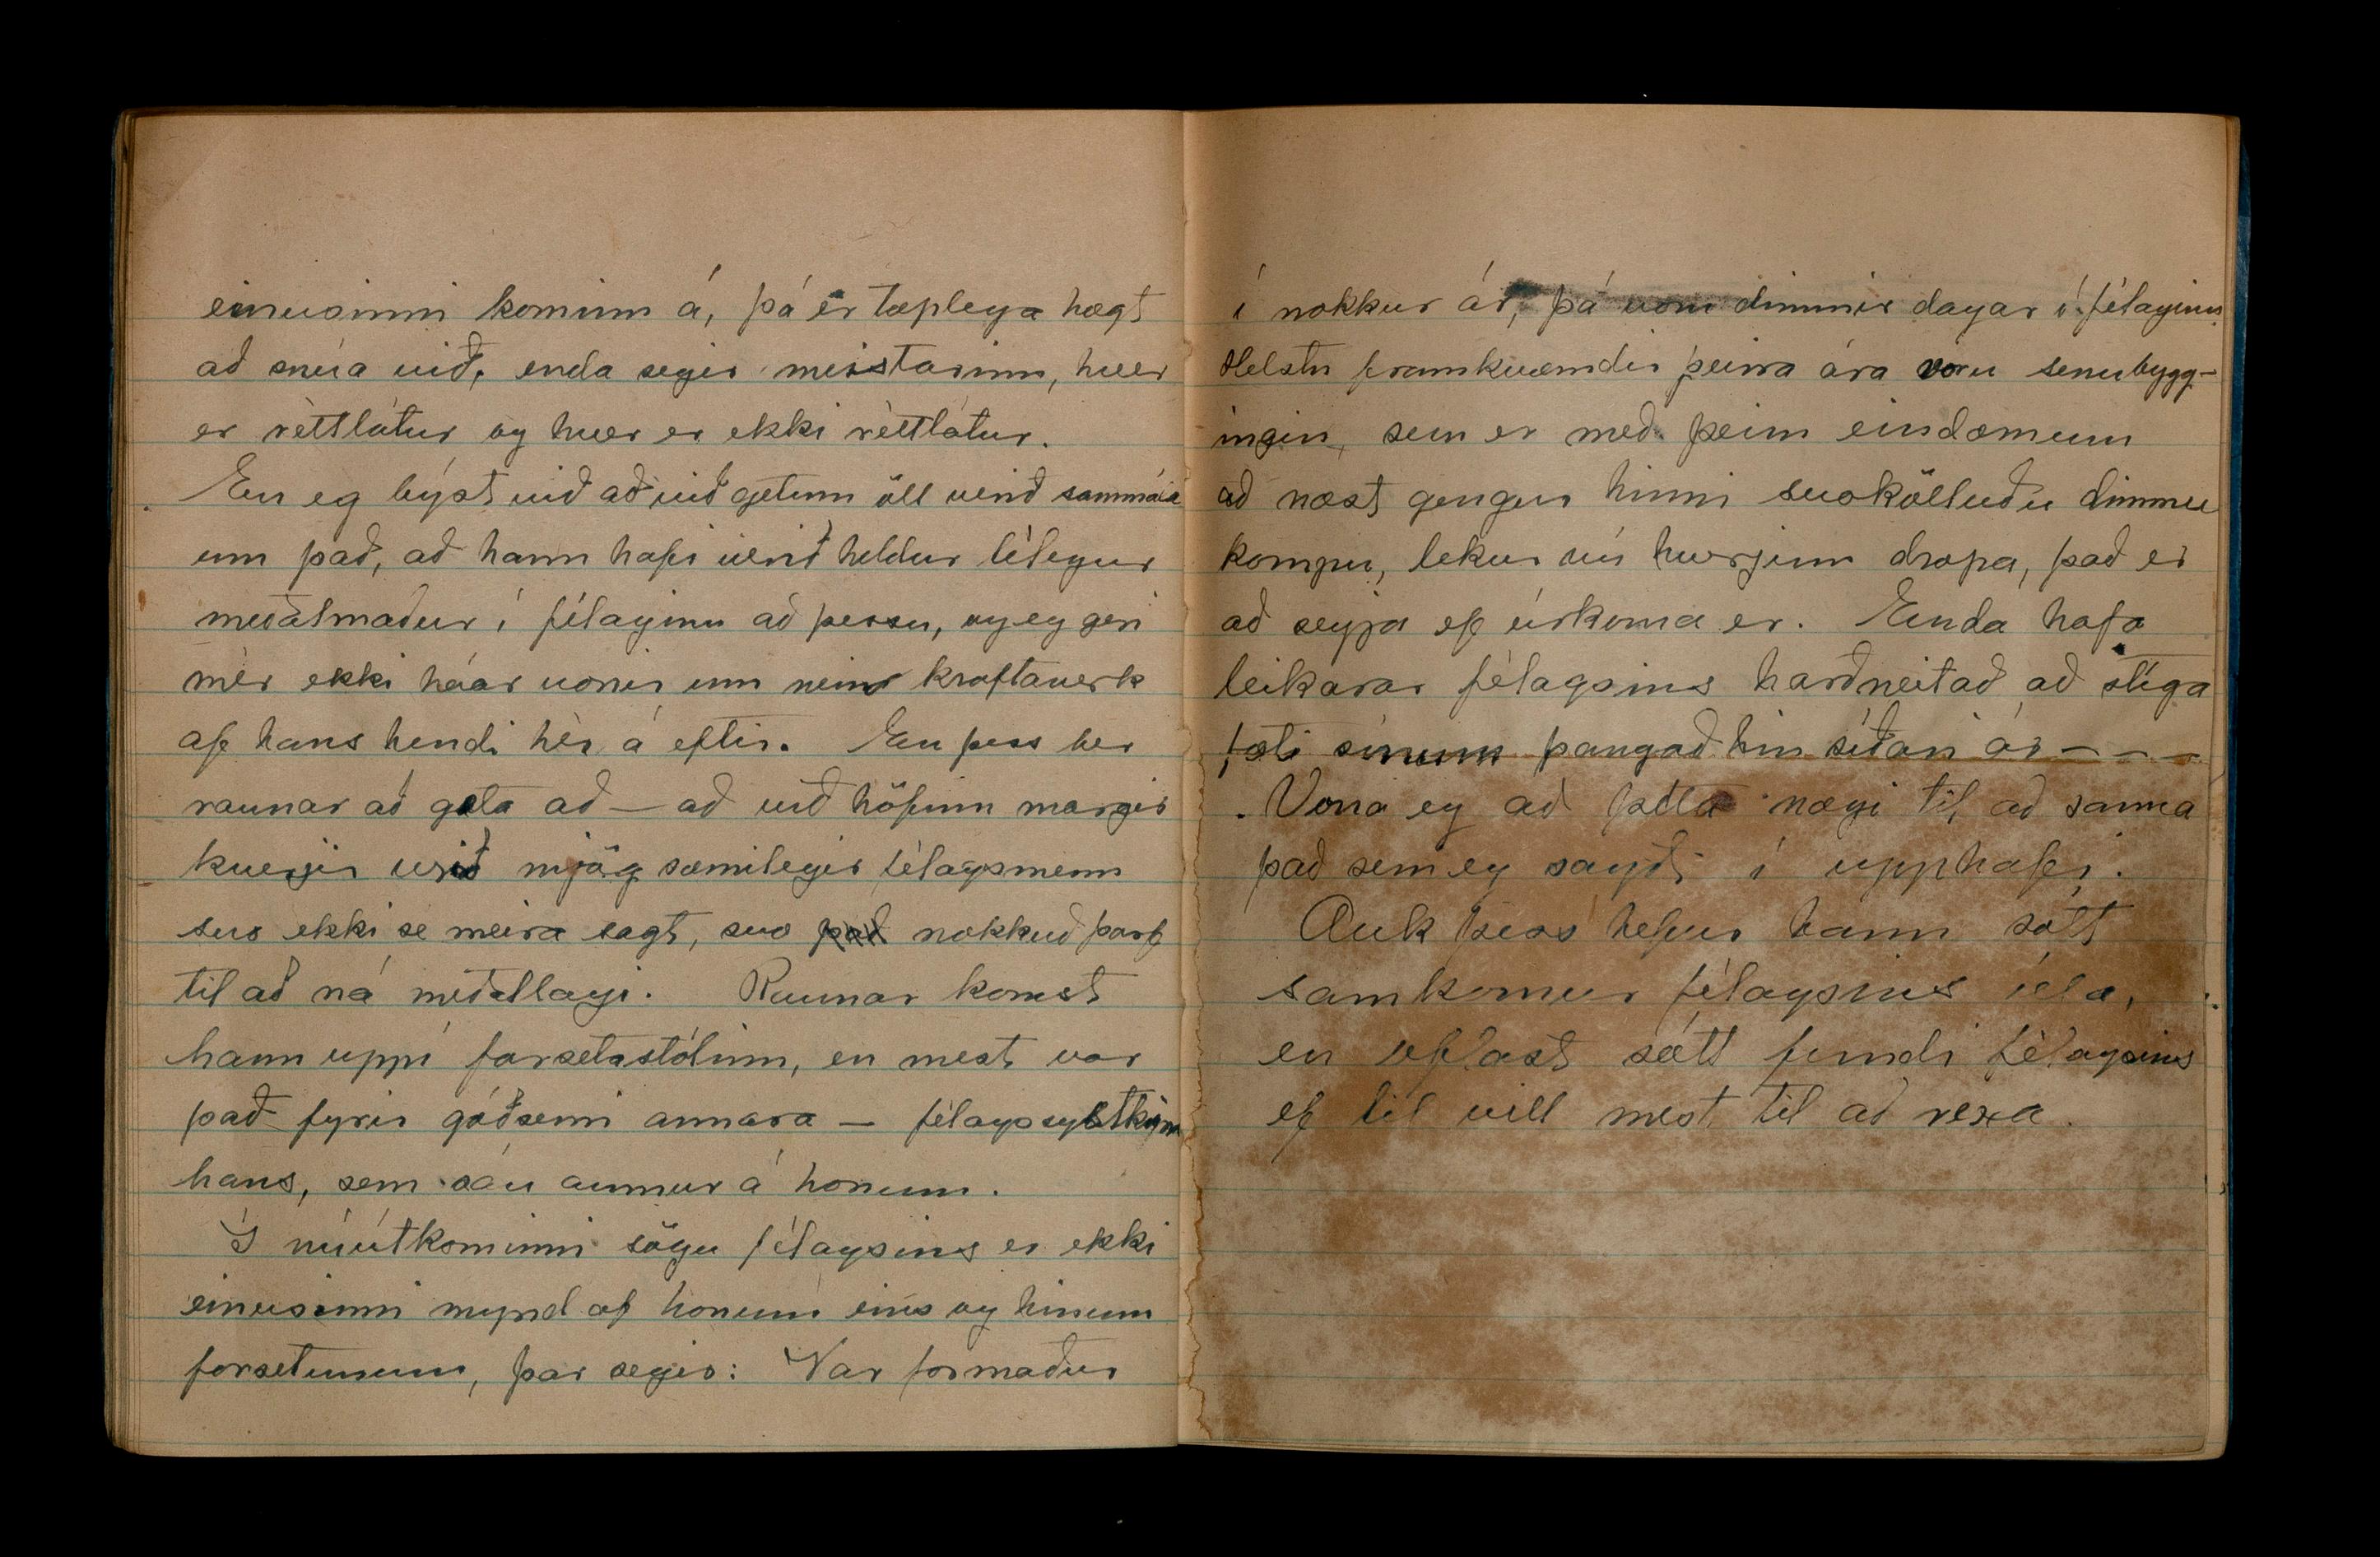 einusinni kominn á, þá er tæplega hægt
að snúa við, enda segir meistarinn, hver
er réttlátur og hver er ekki réttlátur.
En eg býst við að við getum öll verið sammála
um það, að hann hafi verið heldur lélegur
meðalmaður í félaginu að þessu, og eg geri
mér ekki háar vonir um nein kraftaverk
af hans hendi hér á eftir. En þess ber
raunar að gæta að – að við höfum margir
hverjir verið mjög sæmilegir félagsmenn
svo ekki se meira sagt, svo það nokkuð þarf
til að ná meðallagi. Raunar komst
hann uppí forsetastólinn, en mest var
það fyrir góðsemi annara – félagssystkina
hans, sem sáu aumur á honum.
Í nýútkominni sögu félagsins er ekki
einusinni mynd af honum eins og hinum
forsetunum, þar segir: Var formaður
í nokkur ár, þá voru dimmir dagar í félaginu.
Helstu framkvæmdir þeirra ára voru senubygg-
ingin, sem er með þeim eindæmum
að næst gengur hinni svokölluðu dimmu
kompu, lekur nú hverjum dropa, það er
að segja ef úrkoma er. Enda hafa
leikarar félagsins harðneitað að stíga
fæti sínum þangað hin síðari ár – – –
Vona eg að þetta nægi til að sanna
það sem eg sagði í upphafi.
Auk þess hefur hann sótt
samkomur félagsins illa,
en oflast sótt fundi félagsins
ef til vill mest til að rexa.